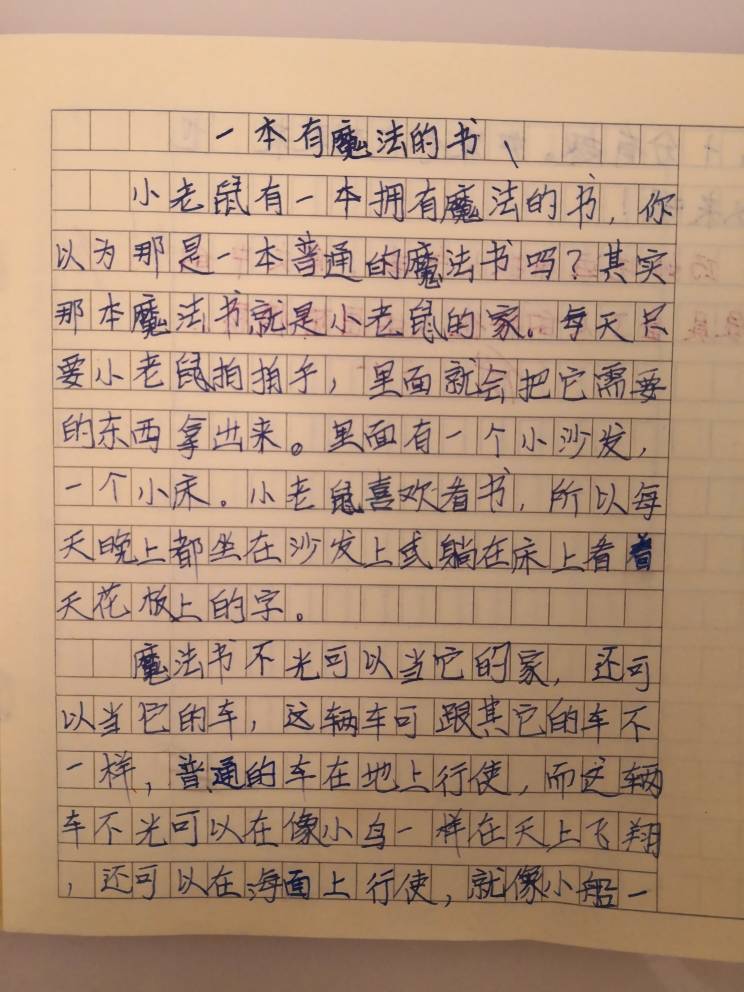 一本有魔法的书
小老鼠有一本拥有魔法的书，你
以为那是一本普通的魔法书吗？其实
那本魔法书就是小老鼠的家。每天只
要小老鼠拍拍手，里面就会把它需要
的东西拿出来。里面有一个小沙发，
一个小床。小老鼠喜欢看书，所以每
天晚上都坐在沙发上或躺在床上看着
天花板上的字。
魔法书不光可以当它的家，还可
以当它的车，这辆车可跟其它的车不
一样，普通的车在地上行使，而这辆
车不光可以在像小鸟一样在天上飞翔
，还可以在海面上行使，就像小船一